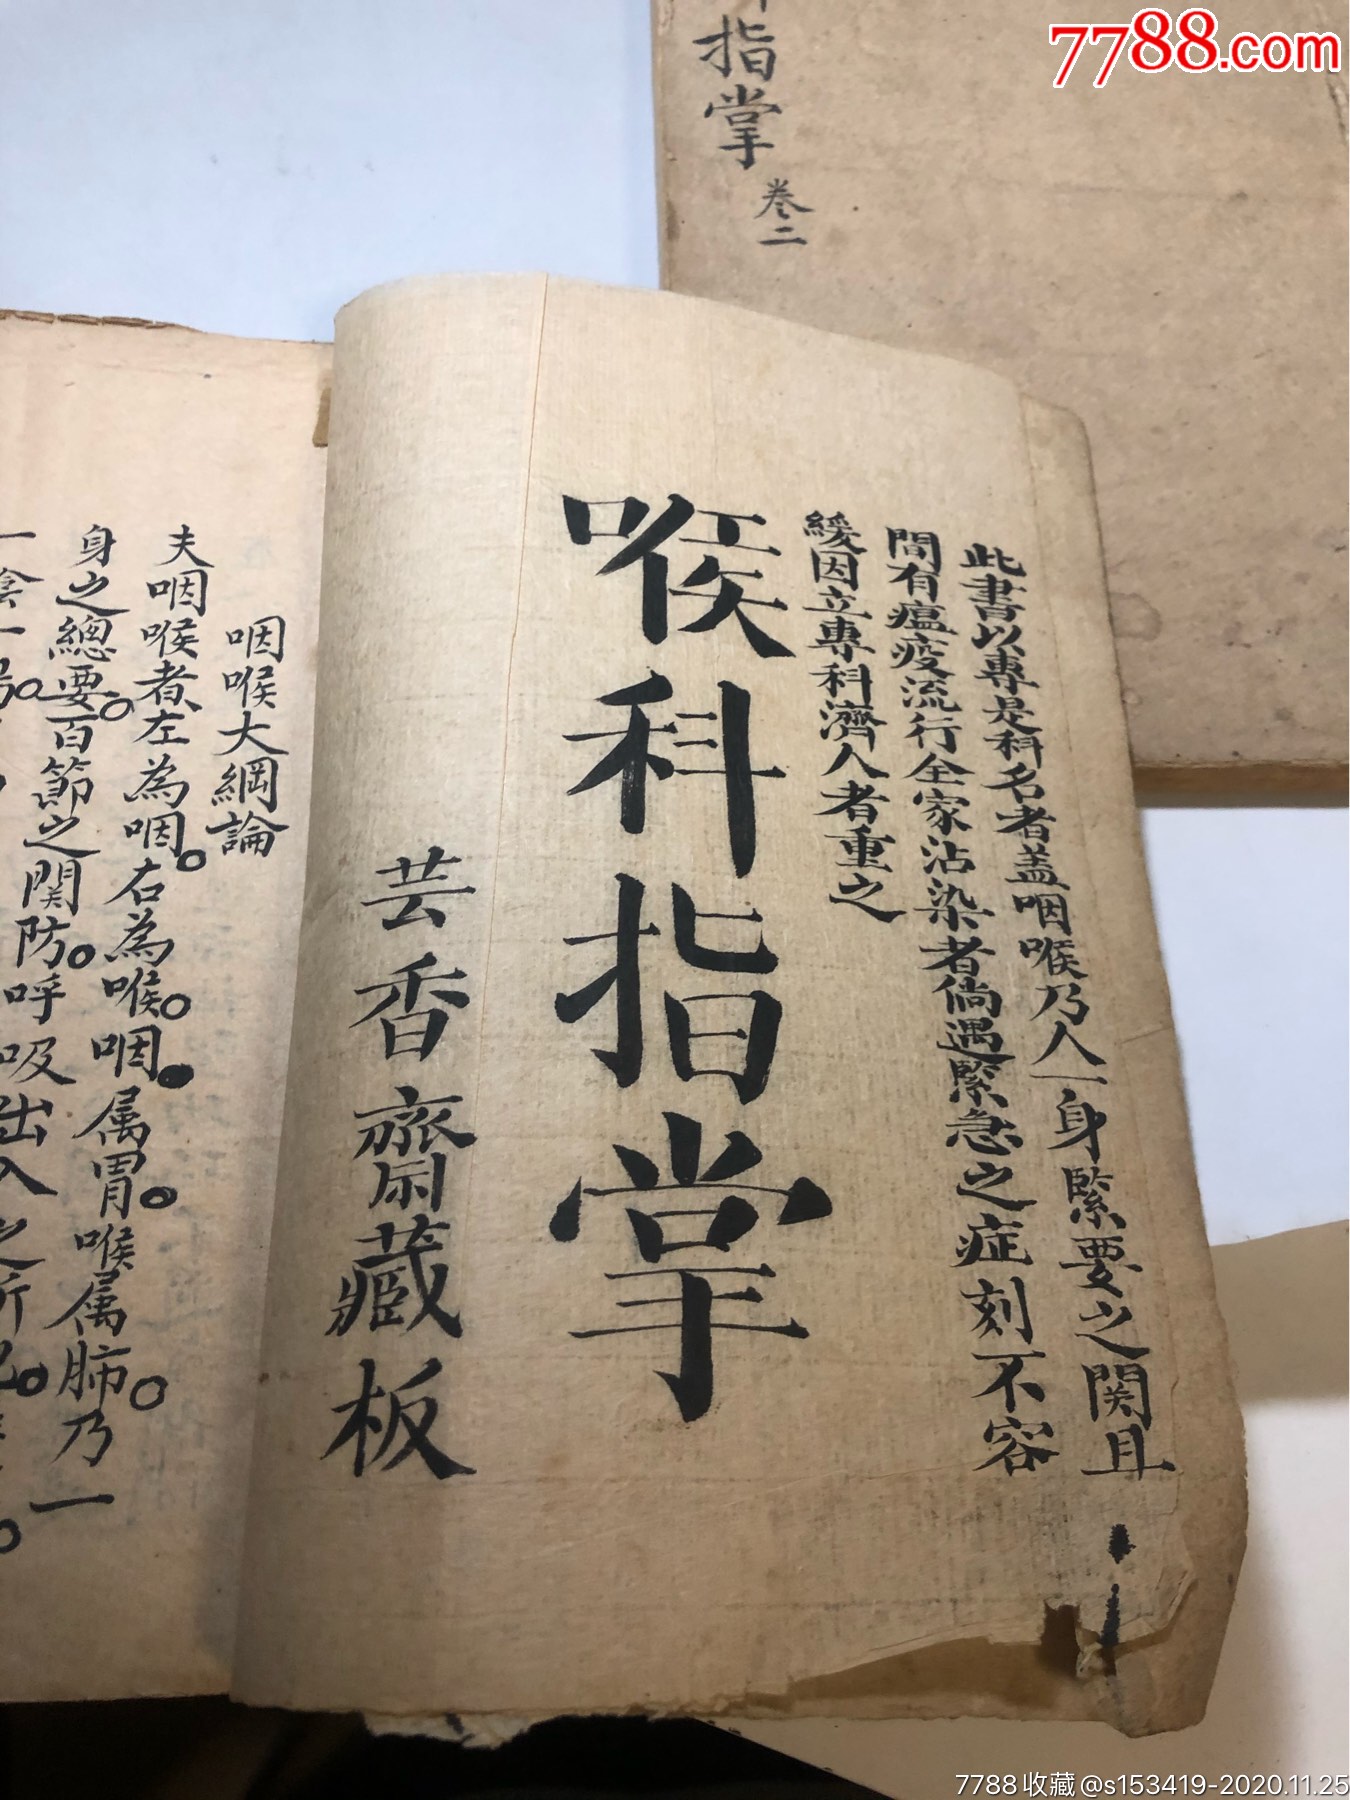 7788.com
指掌
卷二
此書以專是科名者蓋咽喉乃人一身緊要之関且
間有瘟疫流行全家沾染者倘遇緊急之症刻不容
緩因立專科濟人者重之
喉科指掌
芸香齋藏板
咽喉大綱論
夫咽喉者左為咽右為喉咽属胃喉属肺乃一
身之總要百節之関防呼吸出入之所
7788收藏@s153419-2020.11.25